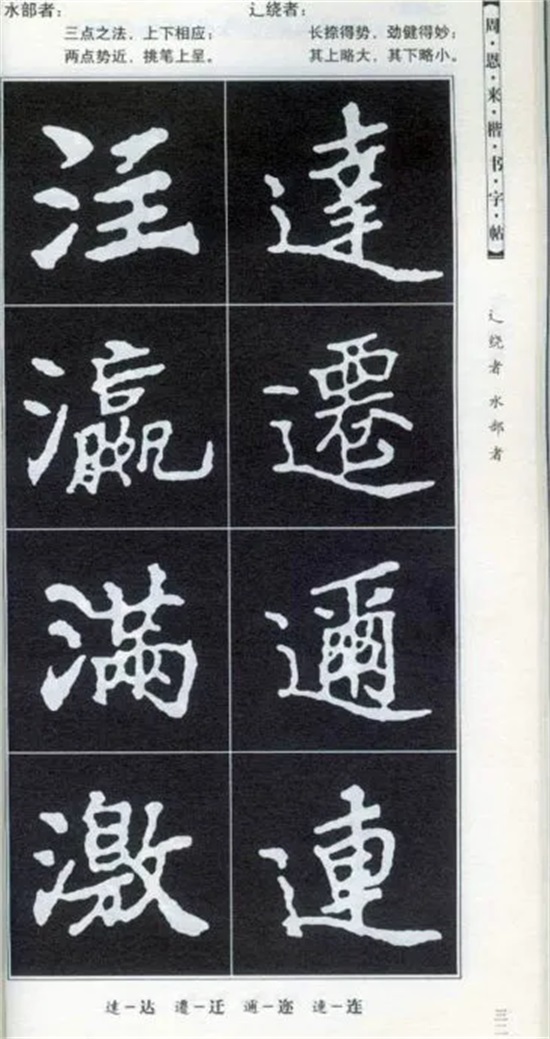 辶绕者：
长捺得势，劲健得妙；
其上略大，其下略小。
水部者：
三点之法，上下相应；
两点势近，挑笔上呈。
【周·恩·来·楷·书·字·帖】
辶绕者 水部者
達
遷
邇
連
注
瀛
满
激
達－达 遷－迁 邇－迩 連－连
三二